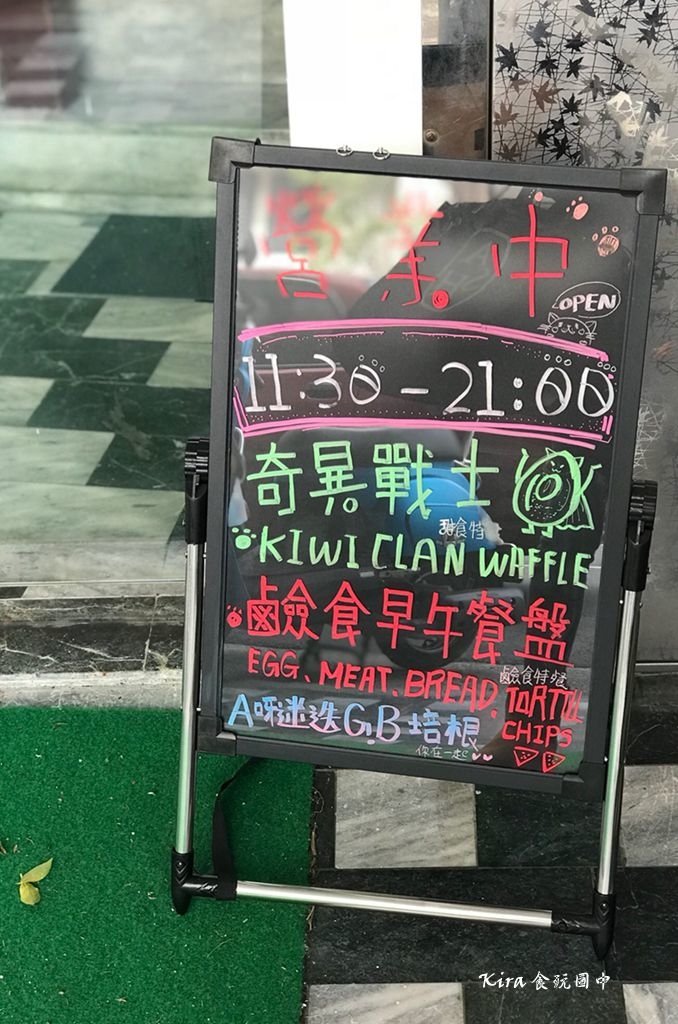 營業中
OPEN
11:30 - 21:00
奇異戰士
甜食特
KIWI CLAN WAFFLE
鹼食早午餐盤
EGG、MEAT、BREAD、TORTILL
鹼食特
CHIPS
A呀迷迭G.B培根
你在一起
Kira 食玩國中